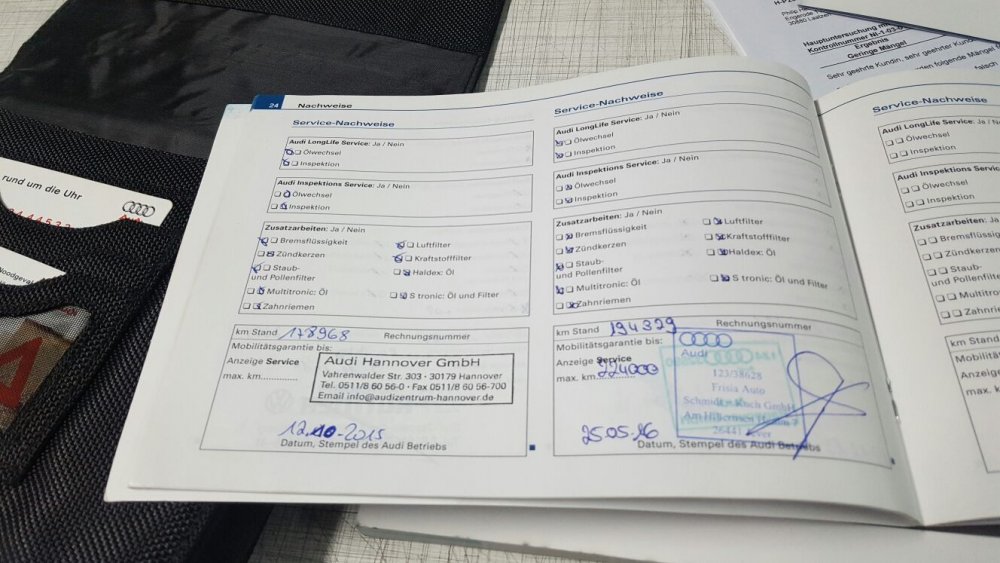 rund um die Uhr
Audi
H-PZ
Philip
Engerode
30880 Laatzen
Hauptuntersuchung mit
Kontrollnummer NI-1-03-
Ergebnis
Geringe Mängel
Sehr geehrte Kundin, sehr geehrter Kunde
folgende Mängel
falsch
24 Nachweise
Service-Nachweise
Audi LongLife Service: Ja / Nein
Ölwechsel
Inspektion
Audi Inspektions Service: Ja / Nein
Ölwechsel
Inspektion
Zusatzarbeiten: Ja / Nein
Bremsflüssigkeit
Luftfilter
Zündkerzen
Kraftstofffilter
Staub-
und Pollenfilter
Haldex: Öl
Multitronic: Öl
S tronic: Öl und Filter
Zahnriemen
km Stand 178968 Rechnungsnummer
Mobilitätsgarantie bis:
Anzeige Service
max. km
Audi Hannover GmbH
Vahrenwalder Str. 303 · 30179 Hannover
Tel. 0511/8 60 56-0 · Fax 0511/8 60 56-700
Email info@audizentrum-hannover.de
12.10-2015
Datum, Stempel des Audi Betriebs
Service-Nachweise
Audi LongLife Service: Ja / Nein
Ölwechsel
Inspektion
Audi Inspektions Service: Ja / Nein
Ölwechsel
Inspektion
Zusatzarbeiten: Ja / Nein
Bremsflüssigkeit
Luftfilter
Zündkerzen
Kraftstofffilter
Staub-
und Pollenfilter
Haldex: Öl
Multitronic: Öl
S tronic: Öl und Filter
Zahnriemen
km Stand 194329 Rechnungsnummer
Mobilitätsgarantie bis:
Anzeige Service
max. km 224000
Audi
123/38628
Frisia Auto
Schmidt + Koch GmbH
26441 Jever
25.05.16
Datum, Stempel des Audi Betriebs
Service-Nachweise
Audi LongLife Service: Ja / Nein
Ölwechsel
Inspektion
Audi Inspektions Service
Ölwechsel
Inspektion
Zusatzarbeiten: Ja / Nein
Bremsflüssigkeit
Zündkerzen
Staub-
und Pollenfilter
Multitronic
Zahnriemen
km Stand
Mobilität
Anzeige
max. km